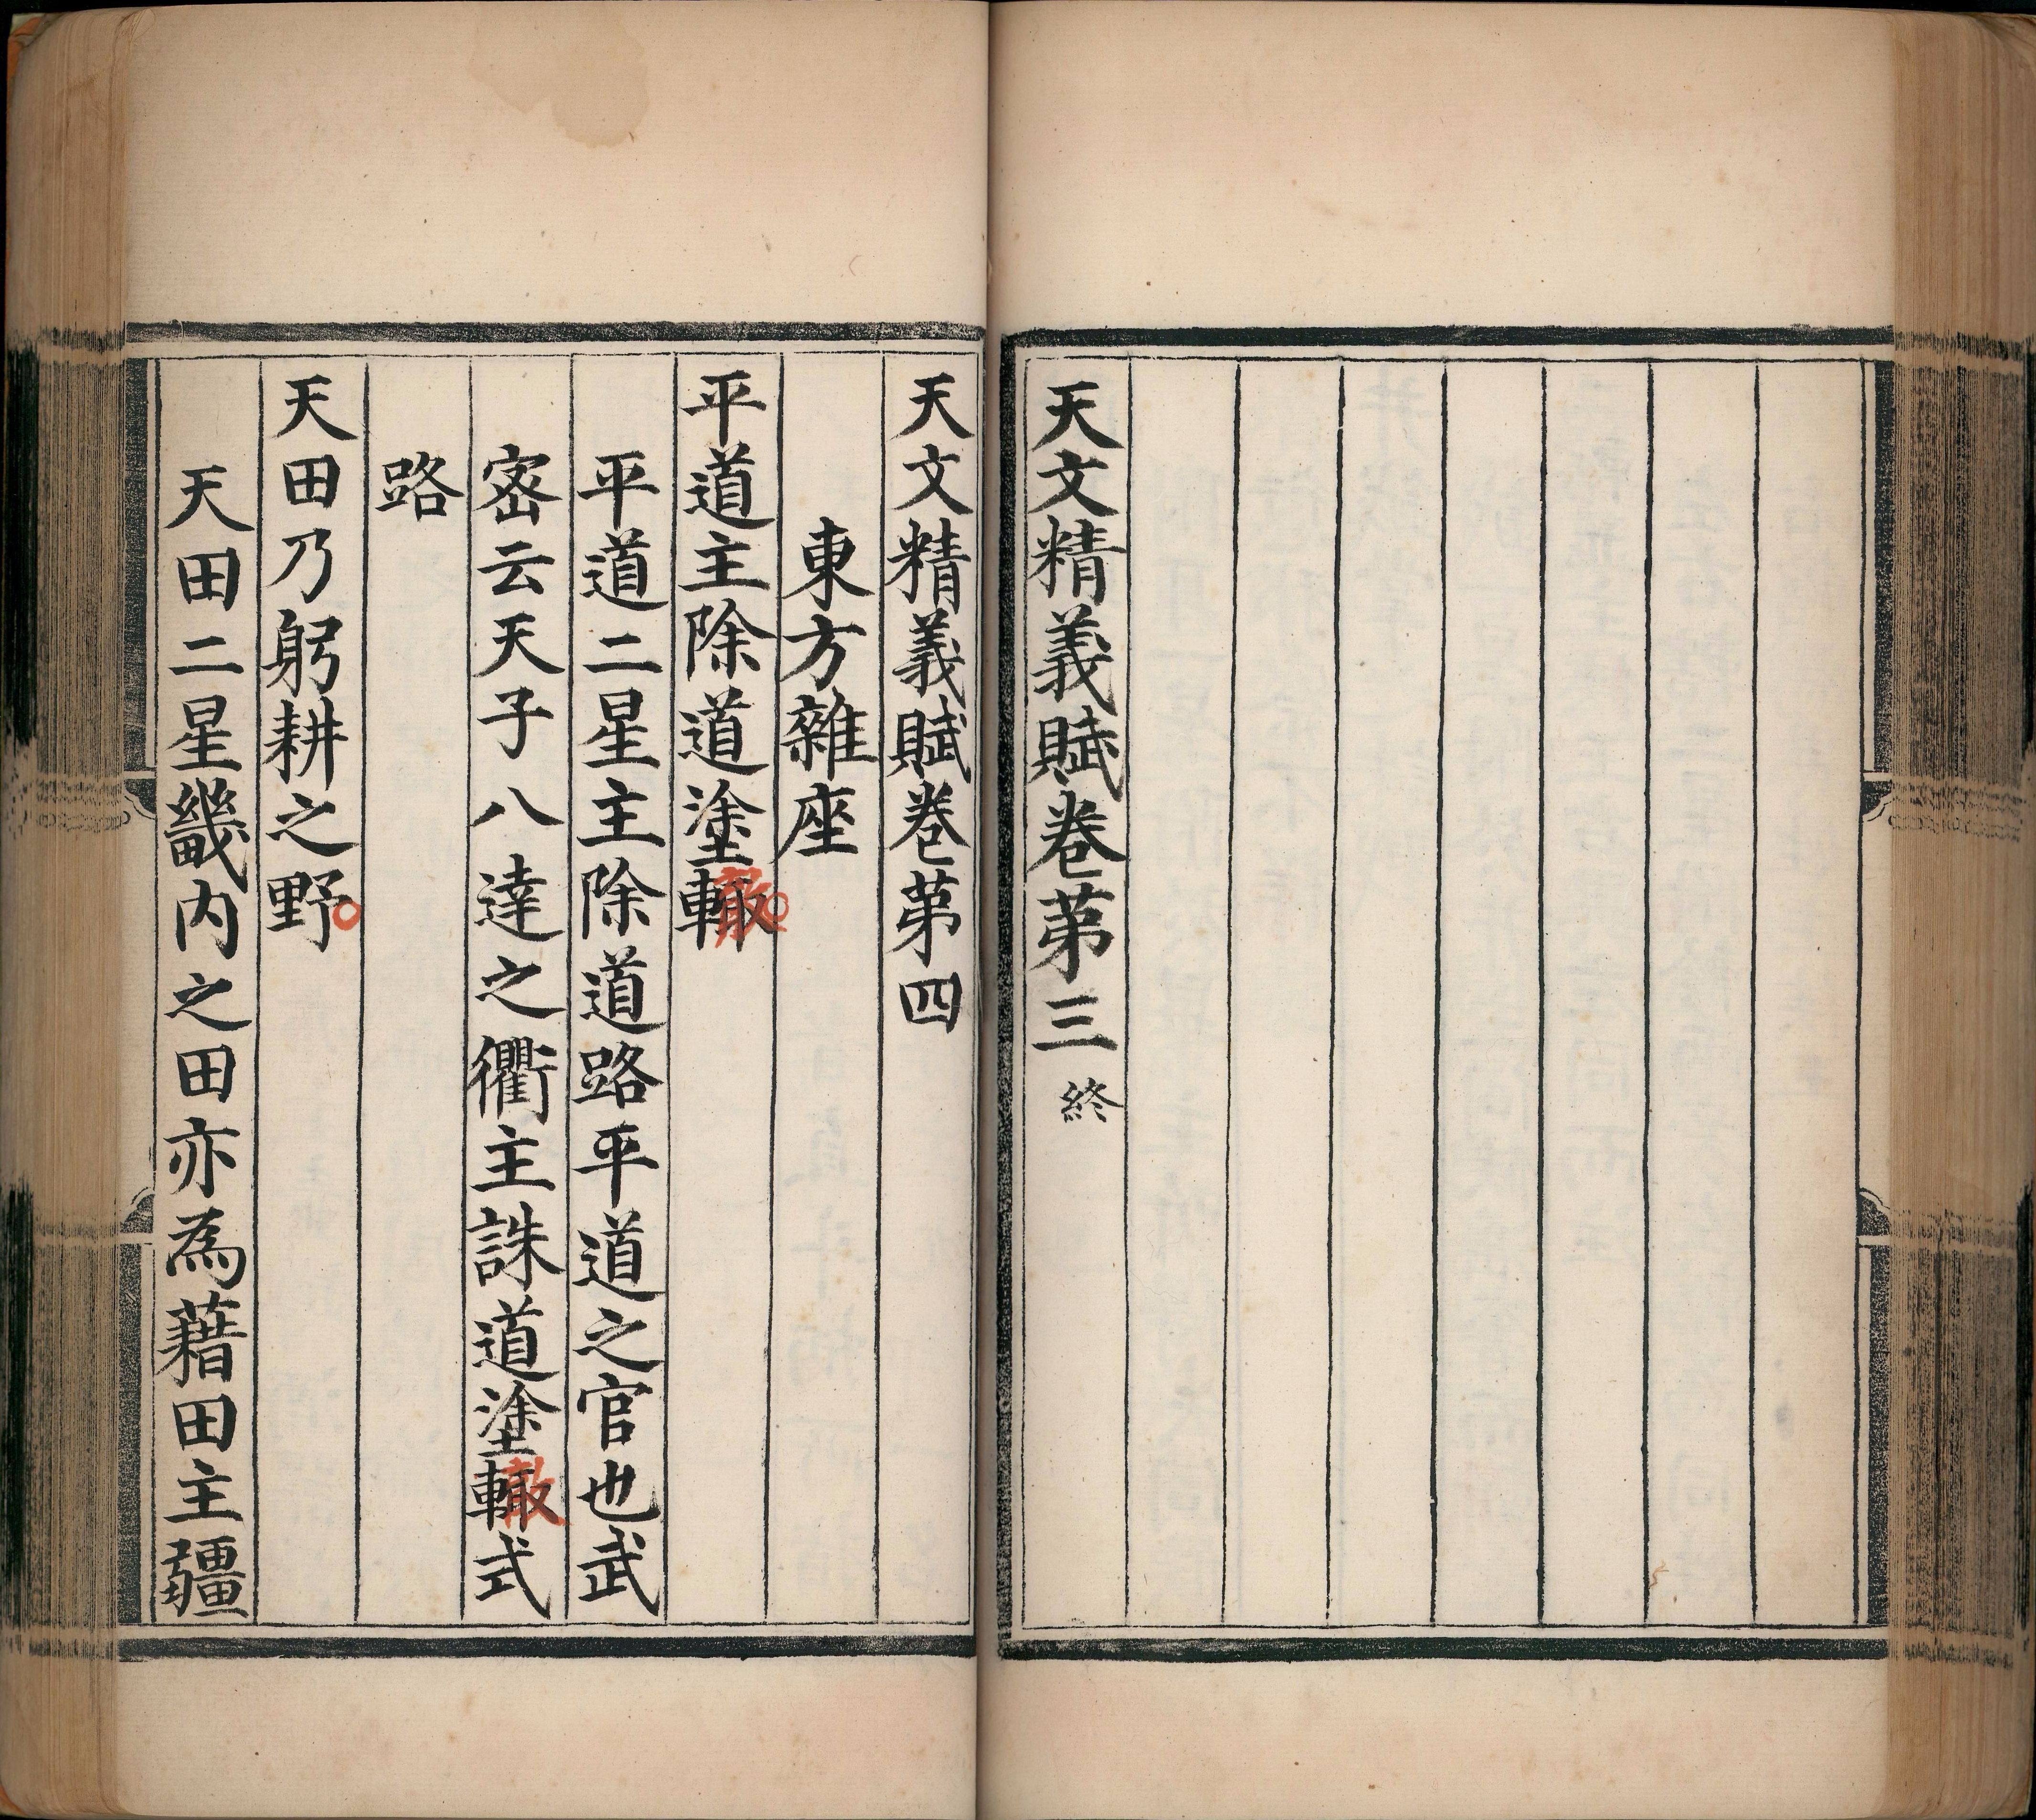 天文精義賦卷第三 終
天文精義賦卷第四
東方雜座
平道主除道塗轍
平道二星主除道路平道之官也武
密云天子八達之衢主誅道塗轍式
路
天田乃躬耕之野
天田二星畿内之田亦為藉田主疆